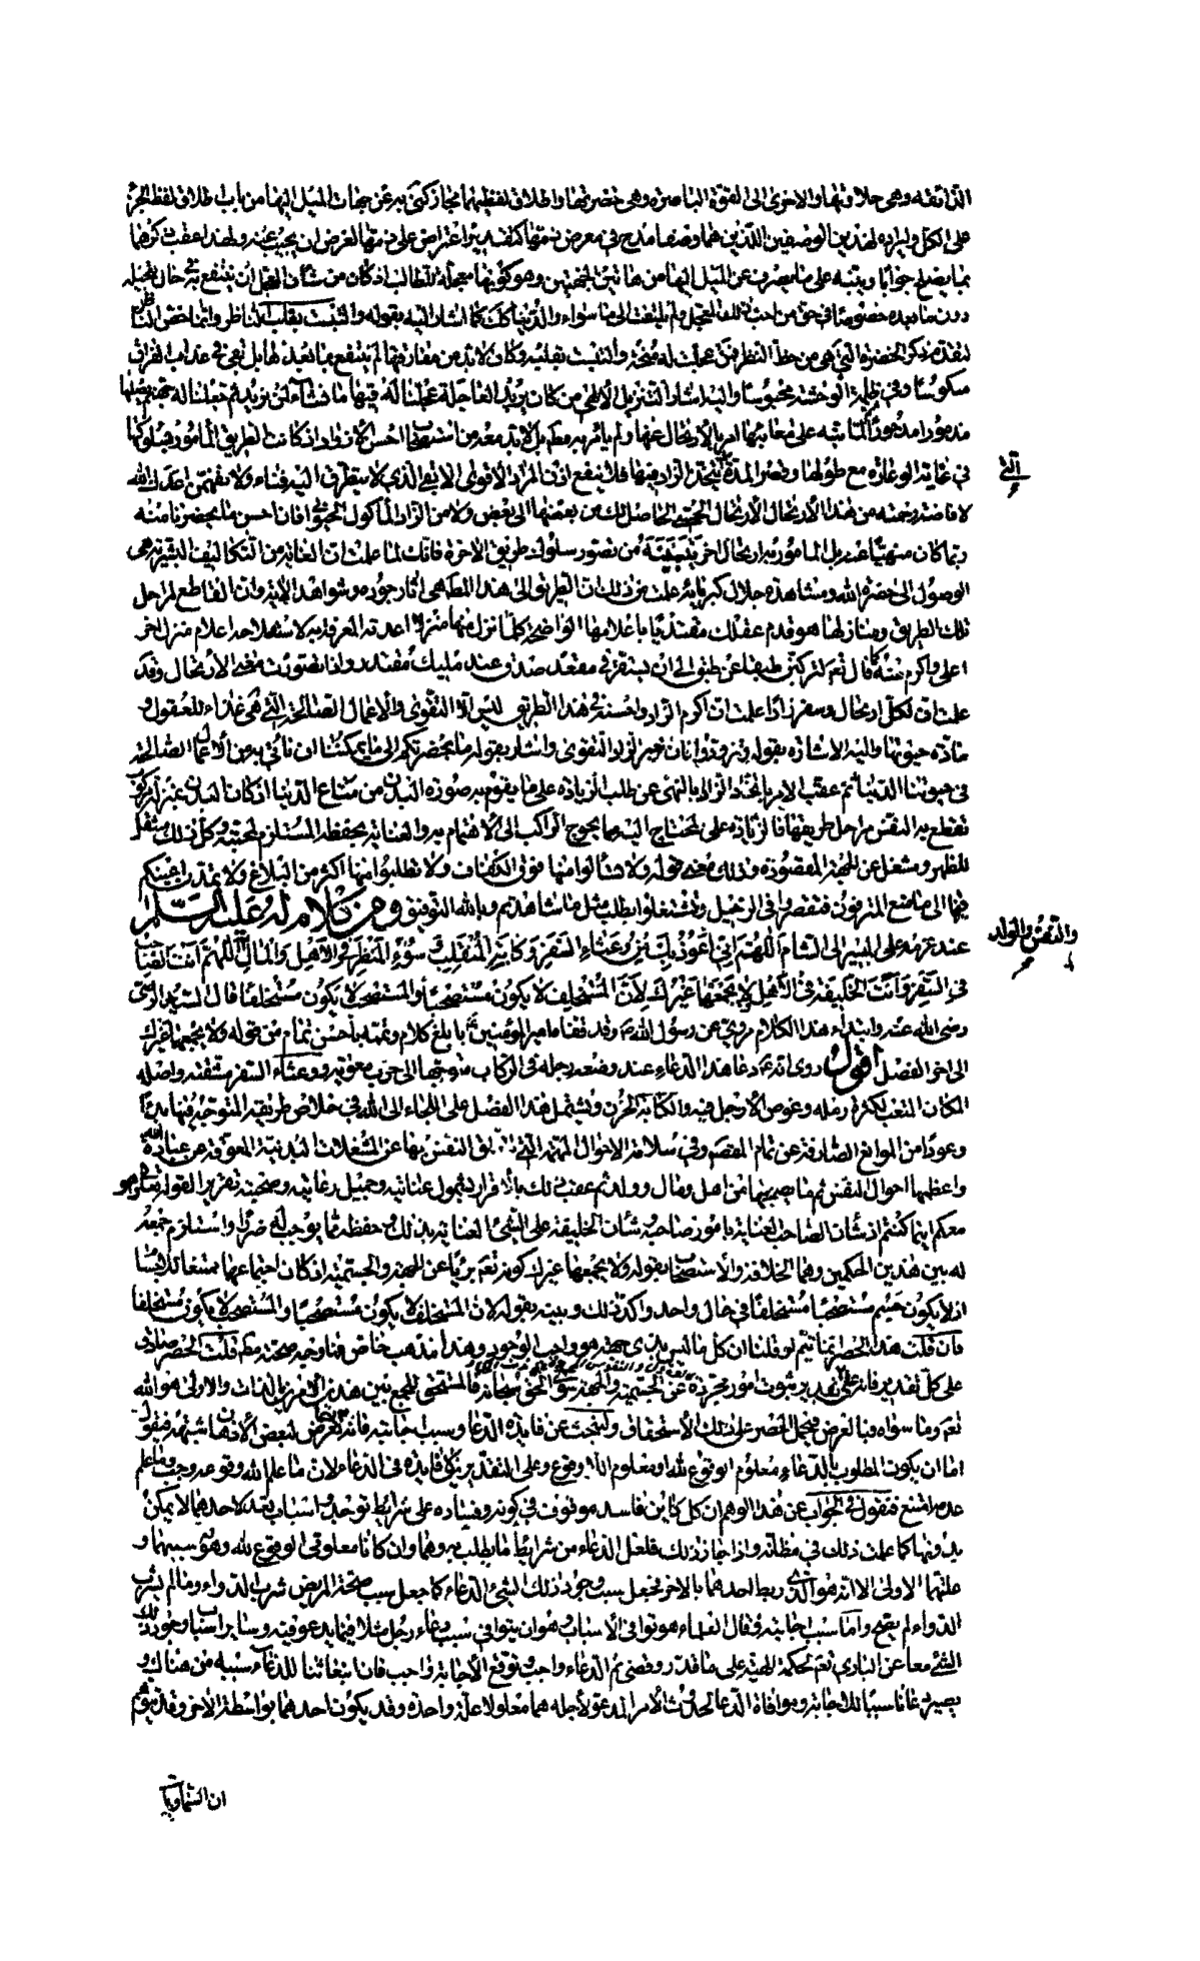 الذائقه وهى حلاوتها والاخرى الى القوة الباصرة وهى خضرتها واطلاق لفظيهما مجاز كنى به عن جهات الميل اليها من باب اطلاق لفظ الجزء
على الكل وايراده لهذين الوصفين اللذين هما وصفا مدح فى معرض ذمها كتقدير اعتراض على ذمها لغرض ان يجيب عنه ولهذا عقب ذكرهما
بما يصلح جوابا وينبه على ما يصرف عن الميل اليها من هاتين الجهتين وهو كونها معجلة للطالب اذ كان من شأن المعجل ان ينتفع به حال تعجيله
دون ما بعده خصوصا فى حق من احب ذلك المعجل ولم يلتفت الى ما سواه والدنيا كذلك كما اشار اليه بقوله والتبست بقلب الناظر وانما خص الناظر
لتقدم ذكر الخضرة التى هى من حظ النظر فمن عجلت له منحة والتبست بقلبه وكان لابد من مفارقتها لم ينتفع بما بعدها بل بقى فى عذاب الفراق
منكوسا وفى ظلمة الوحشة محبوسا واليه اشار التنزيل الالهى من كان يريد العاجلة عجلنا له فيها ما نشاء لمن نريد ثم جعلنا له جهنم يصليها
مذموما مدحورا ثم لما نبه على معايبها امر بالارتحال عنها ولم يأمر به مط بل لابد معه من استصحاب احسن الازواد اذ كانت الطريق المأمور بسلوكها
فى غاية الوعارة مع طولها وقصر المدة التى يتخذ الزاد فيها فلا ينفع اذن الا الزاد الاقوى الابقى الذى لا يتطرق اليه فناء ولا تفهمن اعدك الله
لافاضة رحمته من هذا الارتحال الارتحال الحسى الحاصل لك من بعضها الى بعض ولا من الزاد المأكول الحيوانى فان احسن ما يحضرنا منه
ربما كان منهيا عنه بل المأمور به ارتحال اخر تتبينه من تصور سلوك طريق الاخرة فانك لما علمت ان الغاية من التكاليف البشرية هى
الوصول الى حضرة الله ومشاهدة جلال كبريائه علمت من ذلك ان الطريق الى هذا المط هى اثار جوده وشواهد الائه وان القاطع لمراحل
تلك الطريق ومنازلها هو قدم عقلك مقتديا باعلامها الواضحة كلما نزل منها منزلا اعدته المعرفة به لاستملاحه اعلام منزل اخر
اعلى واكرم منه كما قال تم لتركبن طبقا عن طبق الى ان يستقر فى مقعد صدق عند مليك مقتدر واذا تصورت معنى الارتحال وقد
علمت ان لكل ارتحال وسفر زادا علمت ان اكرم الزاد واحسنه فى هذا الطريق ليس الا التقوى والاعمال الصالحة التى هى غذاء للعقول و
مادة حيوتها واليه الاشارة بقوله وتزودوا فان خير الزاد التقوى واشار بقوله ما يحضرتكم الى ما يمكننا ان نأتى به من الاعمال الصالحة
فى حيوتنا الدنيا ثم عقب الامر باتخاذ الزاد بالنهى عن طلب الزيادة على ما يقوم به صورة البدن من متاع الدنيا اذ كان البدن بمنزلة مركوب
تقطع به النفس مراحل طريقها فالزيادة على المحتاج اليه مما يحوج الراكب الى الاهتمام به والعناية بحفظه المستلزم لمحبته وكل ذلك مثقل
للظهر ومشغل عن الجهة المقصودة وذلك معنى قوله ولا تسألوا منها فوق الكفاف ولا تطلبوا منها اكثر من البلاغ ولا يمتد اعينكم
فيها الى ما متع المترفون فتقصروا فى الرحيل وتشتغلوا بطلب مثل ما شاهدتم وبالله التوفيق ومن كلام له عليه السلام
عند عزمه على المسير الى الشام اللهم انى اعوذ بك من وعثاء السفر وكابة المنقلب وسوء المنظر فى الاهل والمال اللهم انت الصاحب
فى السفر وانت الخليفة فى الاهل ولا يجمعها غيرك لان المستخلف لا يكون مستصحبا والمستصحب لا يكون مستخلفا قال السيد الرضى
رضى الله عنه وابتداء هذا الكلام مروى عن رسول الله ص وقد قفاه امير المؤمنين ع بابلغ كلام وتممه باحسن تمام من قوله ولا يجمعهما غيرك
الى اخر الفصل اقول روى انه ع دعا بهذا الدعاء عند وضعه رجله فى الركاب متوجها الى حرب معوية ووعثاء السفر مشقته واصله
المكان المتعب لكثرة رمله وغوص الارجل فيه والكابة الحزن ويشتمل هذا الفصل على اللجاء الى الله فى خلاص طريقه المتوجه فيها بدءا
وعودا من الموانع الصارفة عن تمام المقصد وفى سلامة الاحوال المهمة التى تتعلق النفس بها عن المشغلات البدنية المعوقة عن عبادة الله
واعظمها احوال النفس ثم ما يصحبها من اهل ومال وولد ثم عقب ذلك بالاقرار بشمول عنايته وجميل رعايته وصحبته تقريرا لقوله تعالى وهو
معكم اينما كنتم اذ شأن الصاحب العناية بامور صاحبه وشأن الخليفة على الشئ العناية بذلك وحفظه مما يوجب له ضررا واستلزم جمعه
له بين هذين الحكمين وهما الخلافة والاستصحاب بقوله ولا يجمعها غيرك كونه تعم بريئا عن الجهة والجسمية اذ كان اجتماعهما ممتنعا للاجسام
اذ لا يكون جسم مستصحبا مستخلفا فى حال واحد واكد ذلك وبينه بقوله لان المستخلف لا يكون مستصحبا والمستصحب لا يكون مستخلفا
فان قلت هذا الحصر انما يتم لو قلنا ان كل ما ليس بذى جهة هو واجب الوجود وهذا مذهب خاص فما وجه صحته مط قلت الحصر صادق
على كل تقدير فانه على تقدير ثبوت امور مجردة عن الجسمية والجهة سوى الحق سبحانه فالمستحق للجمع بين هذين الامرين بالذات والاولى هو الله
تعم وما سواه فبالعرض فيحمل الحصر على ذلك الاستحقاق ولنبحث عن فائدة الدعا وسبب اجابته فانه ربما تعرض لبعض الاذهان شبهة فيقول
اما ان يكون المطلوب بالدعاء معلوم الوقوع لله او معلوم اللاوقوع وعلى التقديرين لا فايدة فى الدعاء لان ما علم الله وقوعه وجب وما علم
عدمه امتنع فنقول فى الجواب عن هذا الوهم ان كل كاين فاسد موقوف فى كونه وفساده على شرايط توجد واسباب تعد لاحدهما لا يمكن
بدونها كما علمت ذلك فى مظانه واذا جاز ذلك فلعل الدعاء من شرايط ما يطلب به وهما وان كانا معلومى الوقوع لله وهو سببهما و
علتهما الاولى الا انه هو الذى ربط احدهما بالاخر فجعل سبب وجود ذلك الشئ الدعاء كما جعل سبب صحة المريض شرب الدواء وما لم يشرب
الدواء لم يصح واما سبب اجابته فقال العلماء هو توافى الاسباب وهو ان يتوافى سبب دعاء رجل مثلا فيما يدعو فيه وساير اسباب وجود ذلك
الشئ معا عن البارى تعم لحكمة الهية على ما قدر وقضى ثم الدعاء واجب وتوقع الاجابة واجب فان انبعاثنا للدعاء سببه من هناك و
يصير دعاؤنا سببا للاجابة وموافاة الدعا لحدوث الامر المدعو لاجله هما معلولا علة واحدة وقد يكون احدهما بواسطة الاخر وقد يتوهم
ان السماويات
التى
والنفس والولد